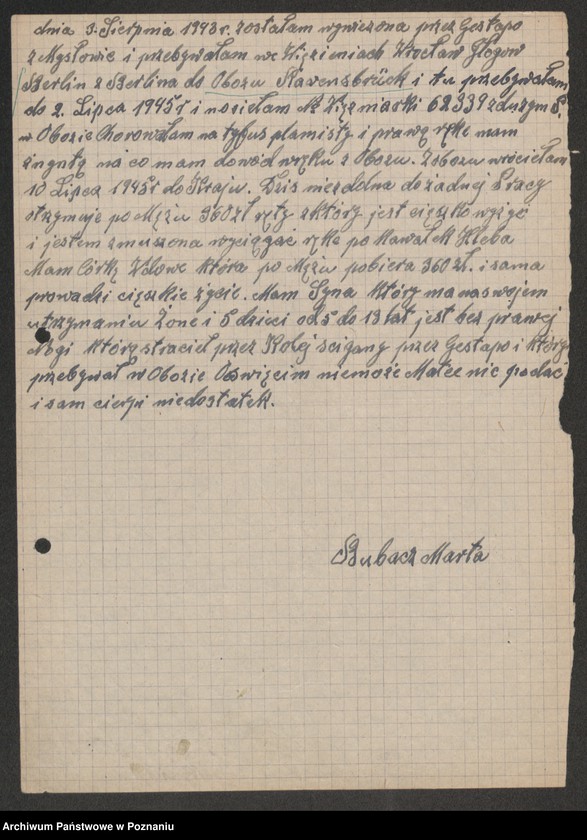 dnia 3. Sierpnia 1943 r. zostałam wywieziona przez Gestapo
z Mysłowic i przebywałam we Więzieniach Wrocław Głogow
Berlin z Berlina do Obozu Ravensbrück i tu przebywałam
do 2. Lipca 1945 r i nosiełam Nr Więźniarki 62339 z dużym P.
w Obozie Chorowałam na tyfus plamisty i prawą rękę mam
na co mam dowód wręku z Obozu. Zobozu wróciełam
10 Lipca 1945 r do Kraju. Dziś niezdolna do żadnej Pracy
otrzymuje po Mężu 360 zł ręty z który jest cięszko wyżyć
i jestem zmuszona wyciągać rękę po Kawałek Chleba
Mam Córkę Wdowe która po Mężu pobiera 360 zł. i sama
prowadzi cięszkie życie. Mam Syna który ma naswojem
utrzymaniu Żone i 5 dzieci od 5 do 13 lat jest bez prawej
Nogi którą straciel przez Kolej ścigany przez Gestapo i który
przebywał w Obozie Oświęcim niemoże Matce nic podać
i sam cierpi niedostatek.
Bubacz Marta
Archiwum Państwowe w Poznaniu